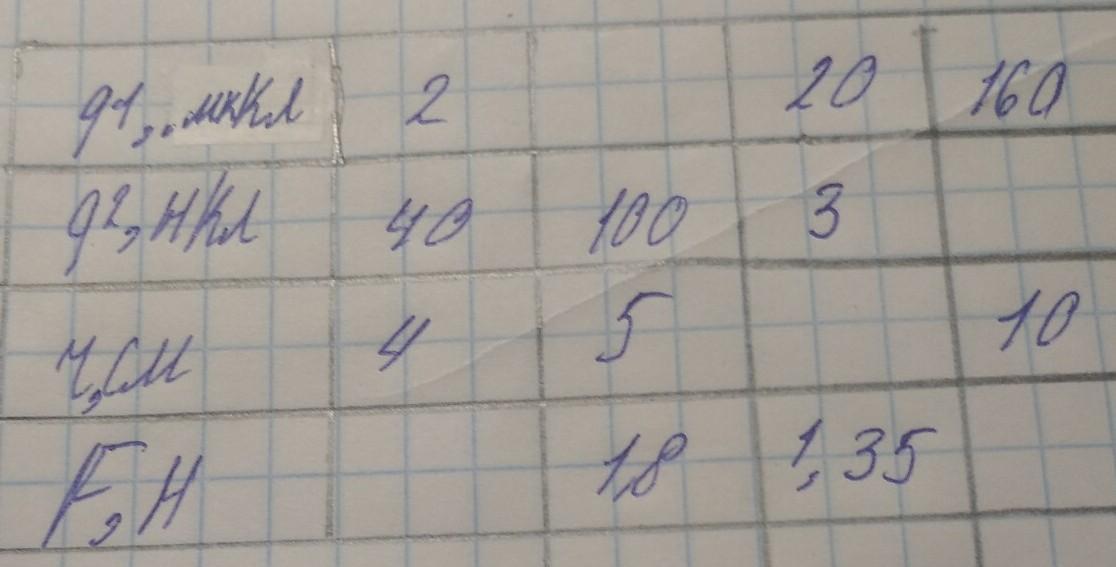 q1, мкКл 2 20 160
q2, нКл 40 100 3
r, см 4 5 10
F, Н 1,8 1,35